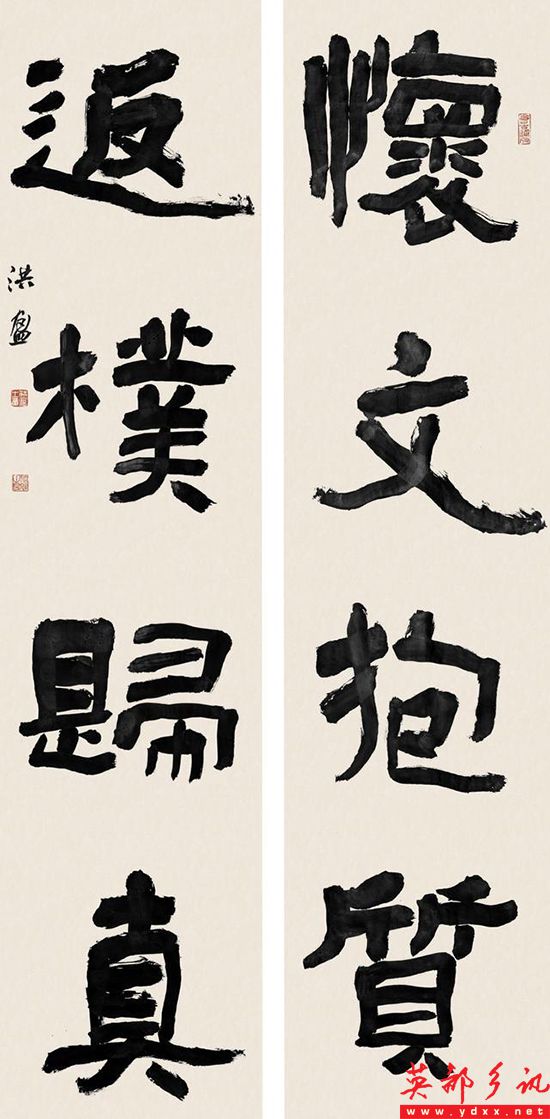 懷文抱質
返樸歸真
洪盈
英都乡讯
www.ydxx.net